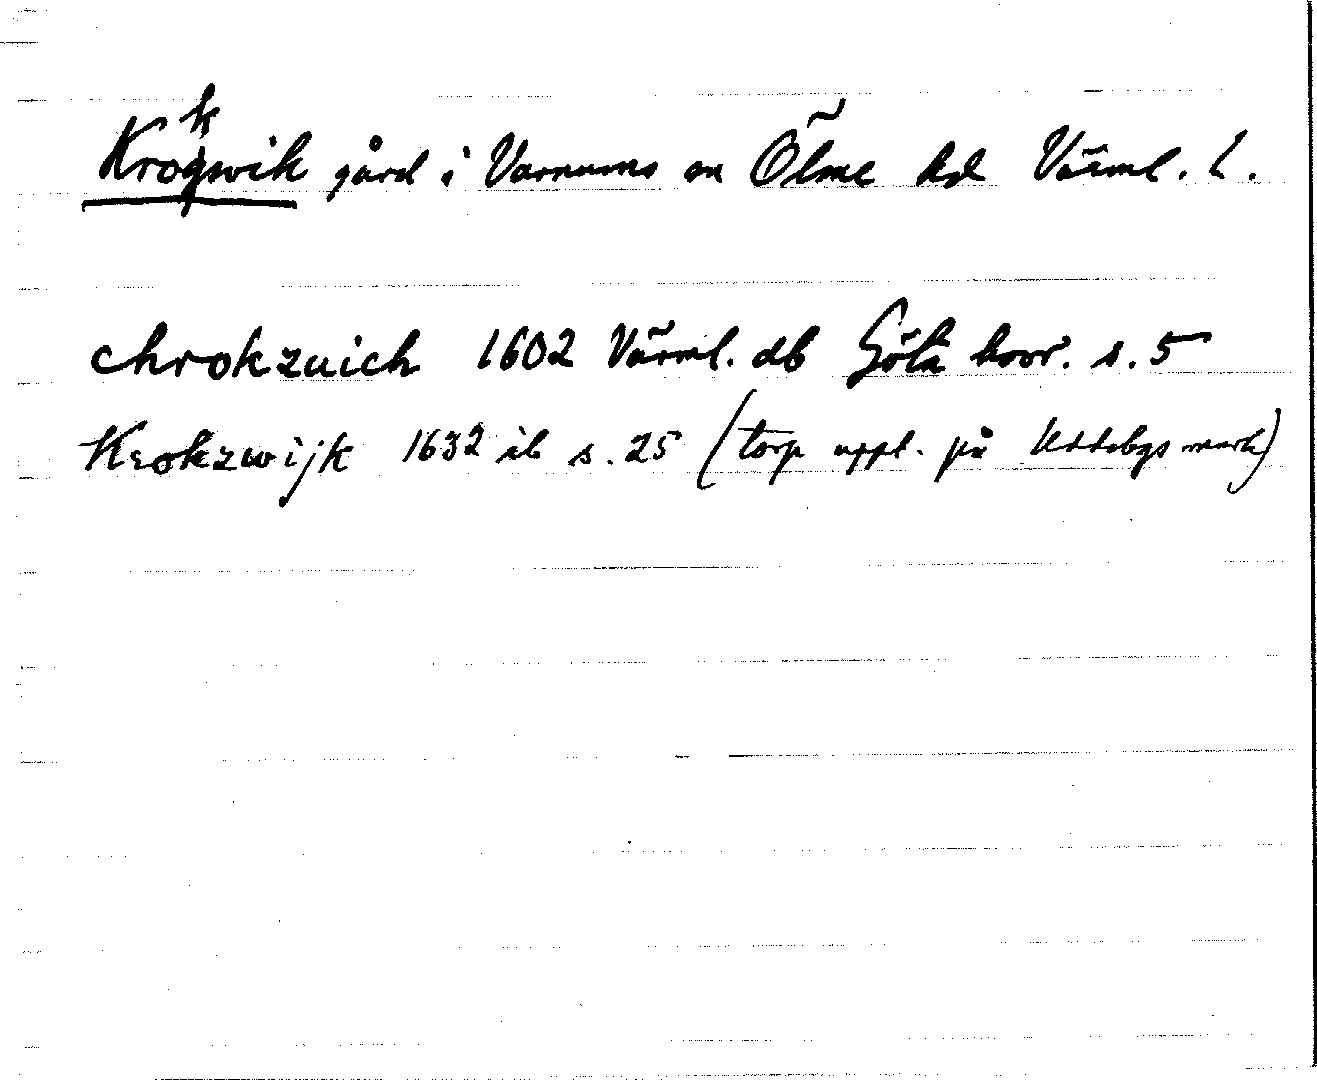 Krokswik gård i Varnums sn Ölme hd Värml. L.
Chrokzuich 1602 Värml. db Göta hovr. s. 5
Krokzwijk 1632 ib s. 25 (torp uppl. på mark)